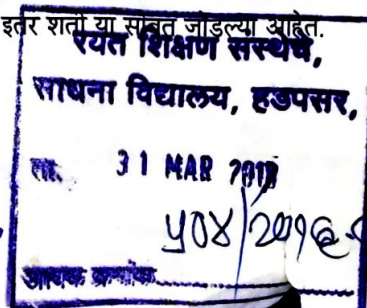 इतर शर्ती या सोबत जोडल्या आहेत.
रयत शिक्षण संस्थेचे,
साधना विद्यालय, हडपसर,
ता. 31 MAR 2018
५०४/२०१८
आवक क्रमांक